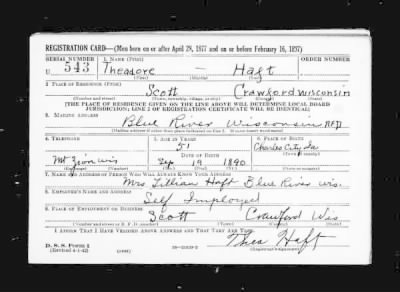 REGISTRATION CARD—(Men born on or after April 28, 1877 and on or before February 16, 1897)
SERIAL NUMBER 1. NAME (Print) ORDER NUMBER
U 543 Theodore — Haft
(First) (Middle) (Last)
2. PLACE OF RESIDENCE (Print)
Scott Crawford Wisconsin
(Number and street) (Town, township, village, or city) (County) (State)
[THE PLACE OF RESIDENCE GIVEN ON THE LINE ABOVE WILL DETERMINE LOCAL BOARD
JURISDICTION; LINE 2 OF REGISTRATION CERTIFICATE WILL BE IDENTICAL]
3. MAILING ADDRESS
Blue River Wisconsin RFD
[Mailing address if other than place indicated on line 2. If same insert word same]
4. TELEPHONE 5. AGE IN YEARS 6. PLACE OF BIRTH
51 Charles City
DATE OF BIRTH
Mt Zion Wis Sep 19 1890 Ia
(Exchange) (Number) (Mo.) (Day) (Yr.) (State or country)
7. NAME AND ADDRESS OF PERSON WHO WILL ALWAYS KNOW YOUR ADDRESS
Mrs Lillian Haft Blue River Wis.
8. EMPLOYER'S NAME AND ADDRESS
Self Employed
9. PLACE OF EMPLOYMENT OR BUSINESS
Scott Crawford Wis
(Number and street or R. F. D. number) (Town) (County) (State)
I AFFIRM THAT I HAVE VERIFIED ABOVE ANSWERS AND THAT THEY ARE TRUE.
D. S. S. Form 1
(Revised 4-1-42) (over) Theo Haft